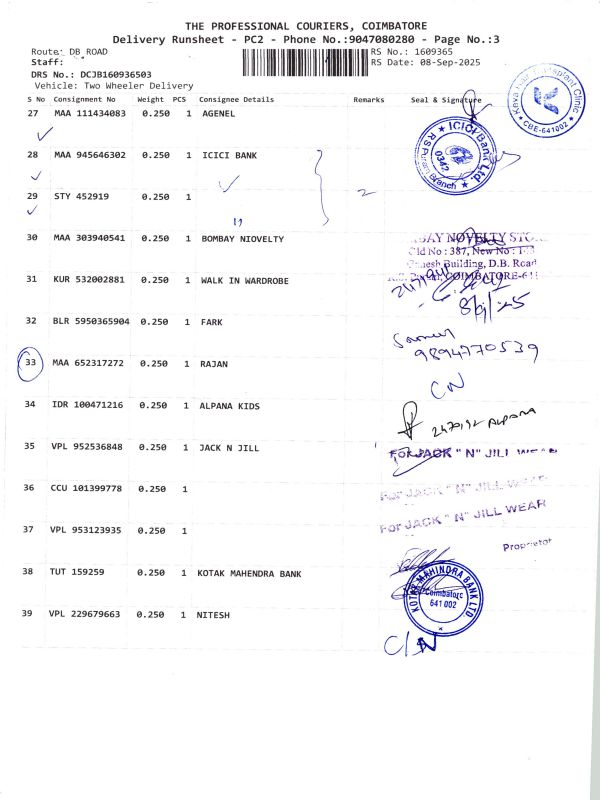 THE PROFESSIONAL COURIERS, COIMBATORE
Delivery Runsheet - PC2 - Phone No.:9047080280 - Page No.:3
Route: DB ROAD
RS No.: 1609365
Staff:
RS Date: 08-Sep-2025
DRS No.: DCJB160936503
Vehicle: Two Wheeler Delivery
S No Consignment No Weight PCS Consignee Details Remarks Seal & Signature
Keva Hair Transplant Clinic
CBE-641002
27 MAA 111434083 0.250 1 AGENEL
ICICI Bank Ltd
0342
RSPuram Branch
28 MAA 945646302 0.250 1 ICICI BANK
29 STY 452919 0.250 1
2
30 MAA 303940541 0.250 1 BOMBAY NIOVELTY
BAY NOVELTY STO
Old No : 387, New No :
Ganesh Building, D.B. Road
COIMBATORE-641
31 KUR 532002881 0.250 1 WALK IN WARDROBE
8/9/25
32 BLR 5950365904 0.250 1 FARK
9894770539
33 MAA 652317272 0.250 1 RAJAN
CN
34 IDR 100471216 0.250 1 ALPANA KIDS
ALPANA
35 VPL 952536848 0.250 1 JACK N JILL
For JACK " N" JILL WEAR
36 CCU 101399778 0.250 1
For JACK " N" JILL WEAR
For JACK " N" JILL WEAR
37 VPL 953123935 0.250 1
Proprietor
38 TUT 159259 0.250 1 KOTAK MAHENDRA BANK
KOTAK MAHINDRA BANK LTD
Coimbatore
641 002
39 VPL 229679663 0.250 1 NITESH
C/N